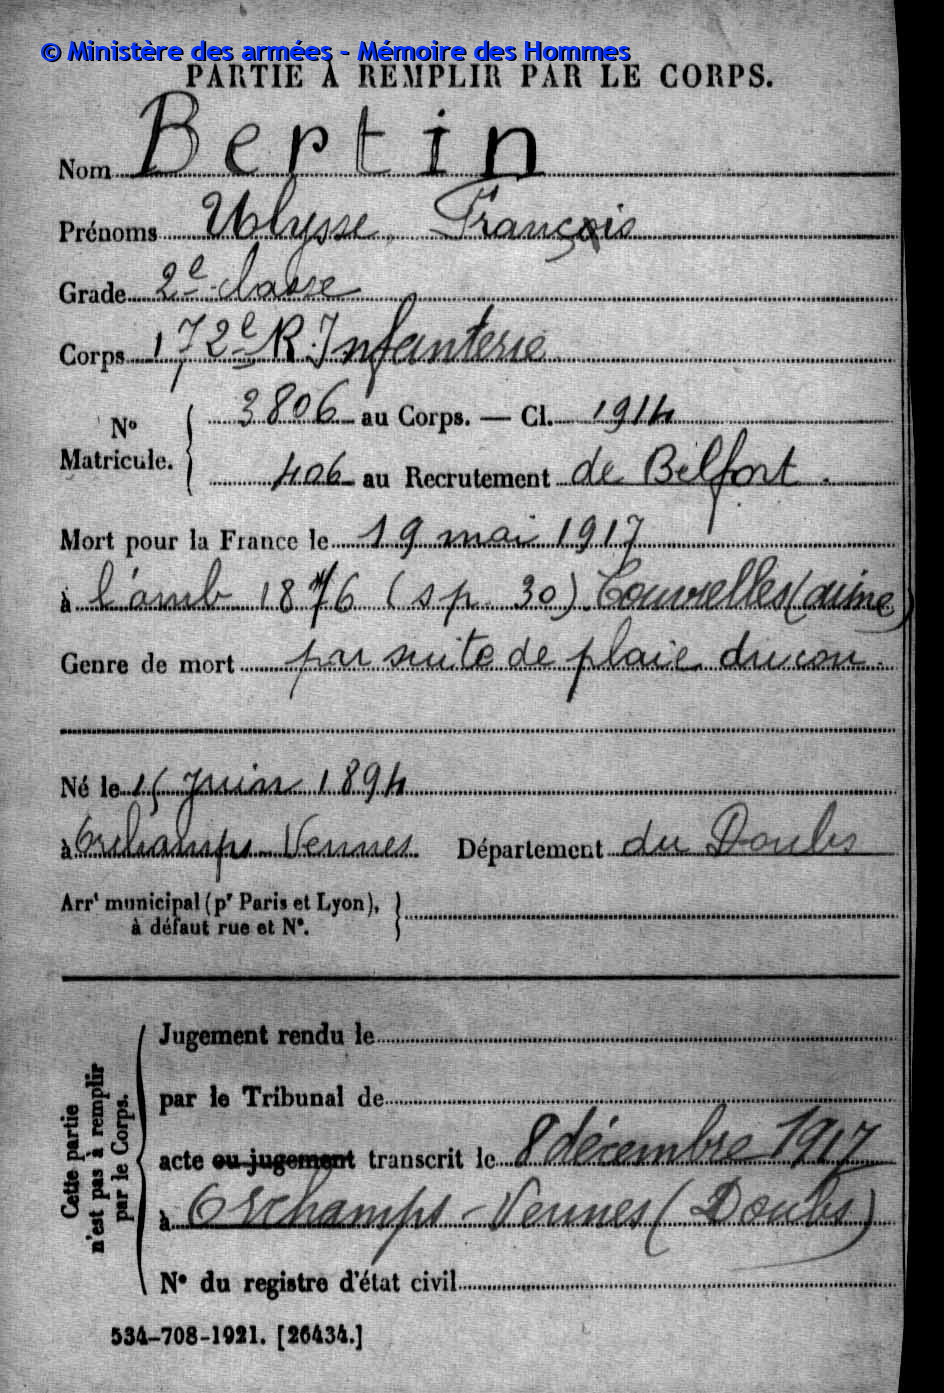 © Ministère des armées - Mémoire des Hommes
PARTIE À REMPLIR PAR LE CORPS.
Nom Bertin
Prénoms Ulysse, François
Grade 2e classe
Corps 172e R. Infanterie
No Matricule. 3806 au Corps. — Cl. 1914
406 au Recrutement de Belfort.
Mort pour la France le 19 mai 1917
à l'amb 1876 (sp. 30) Couvrelles (aisne)
Genre de mort par suite de plaie du cou.
Né le 15 Juin 1894
à Orchamps-Vennes Département du Doubs
Arrt municipal (pr Paris et Lyon),
à défaut rue et No.
Cette partie
n'est pas à remplir
par le Corps.
Jugement rendu le
par le Tribunal de
acte ou jugement transcrit le 8 décembre 1917
à Orchamps-Vennes (Doubs)
No du registre d'état civil
534-708-1921. [26434.]